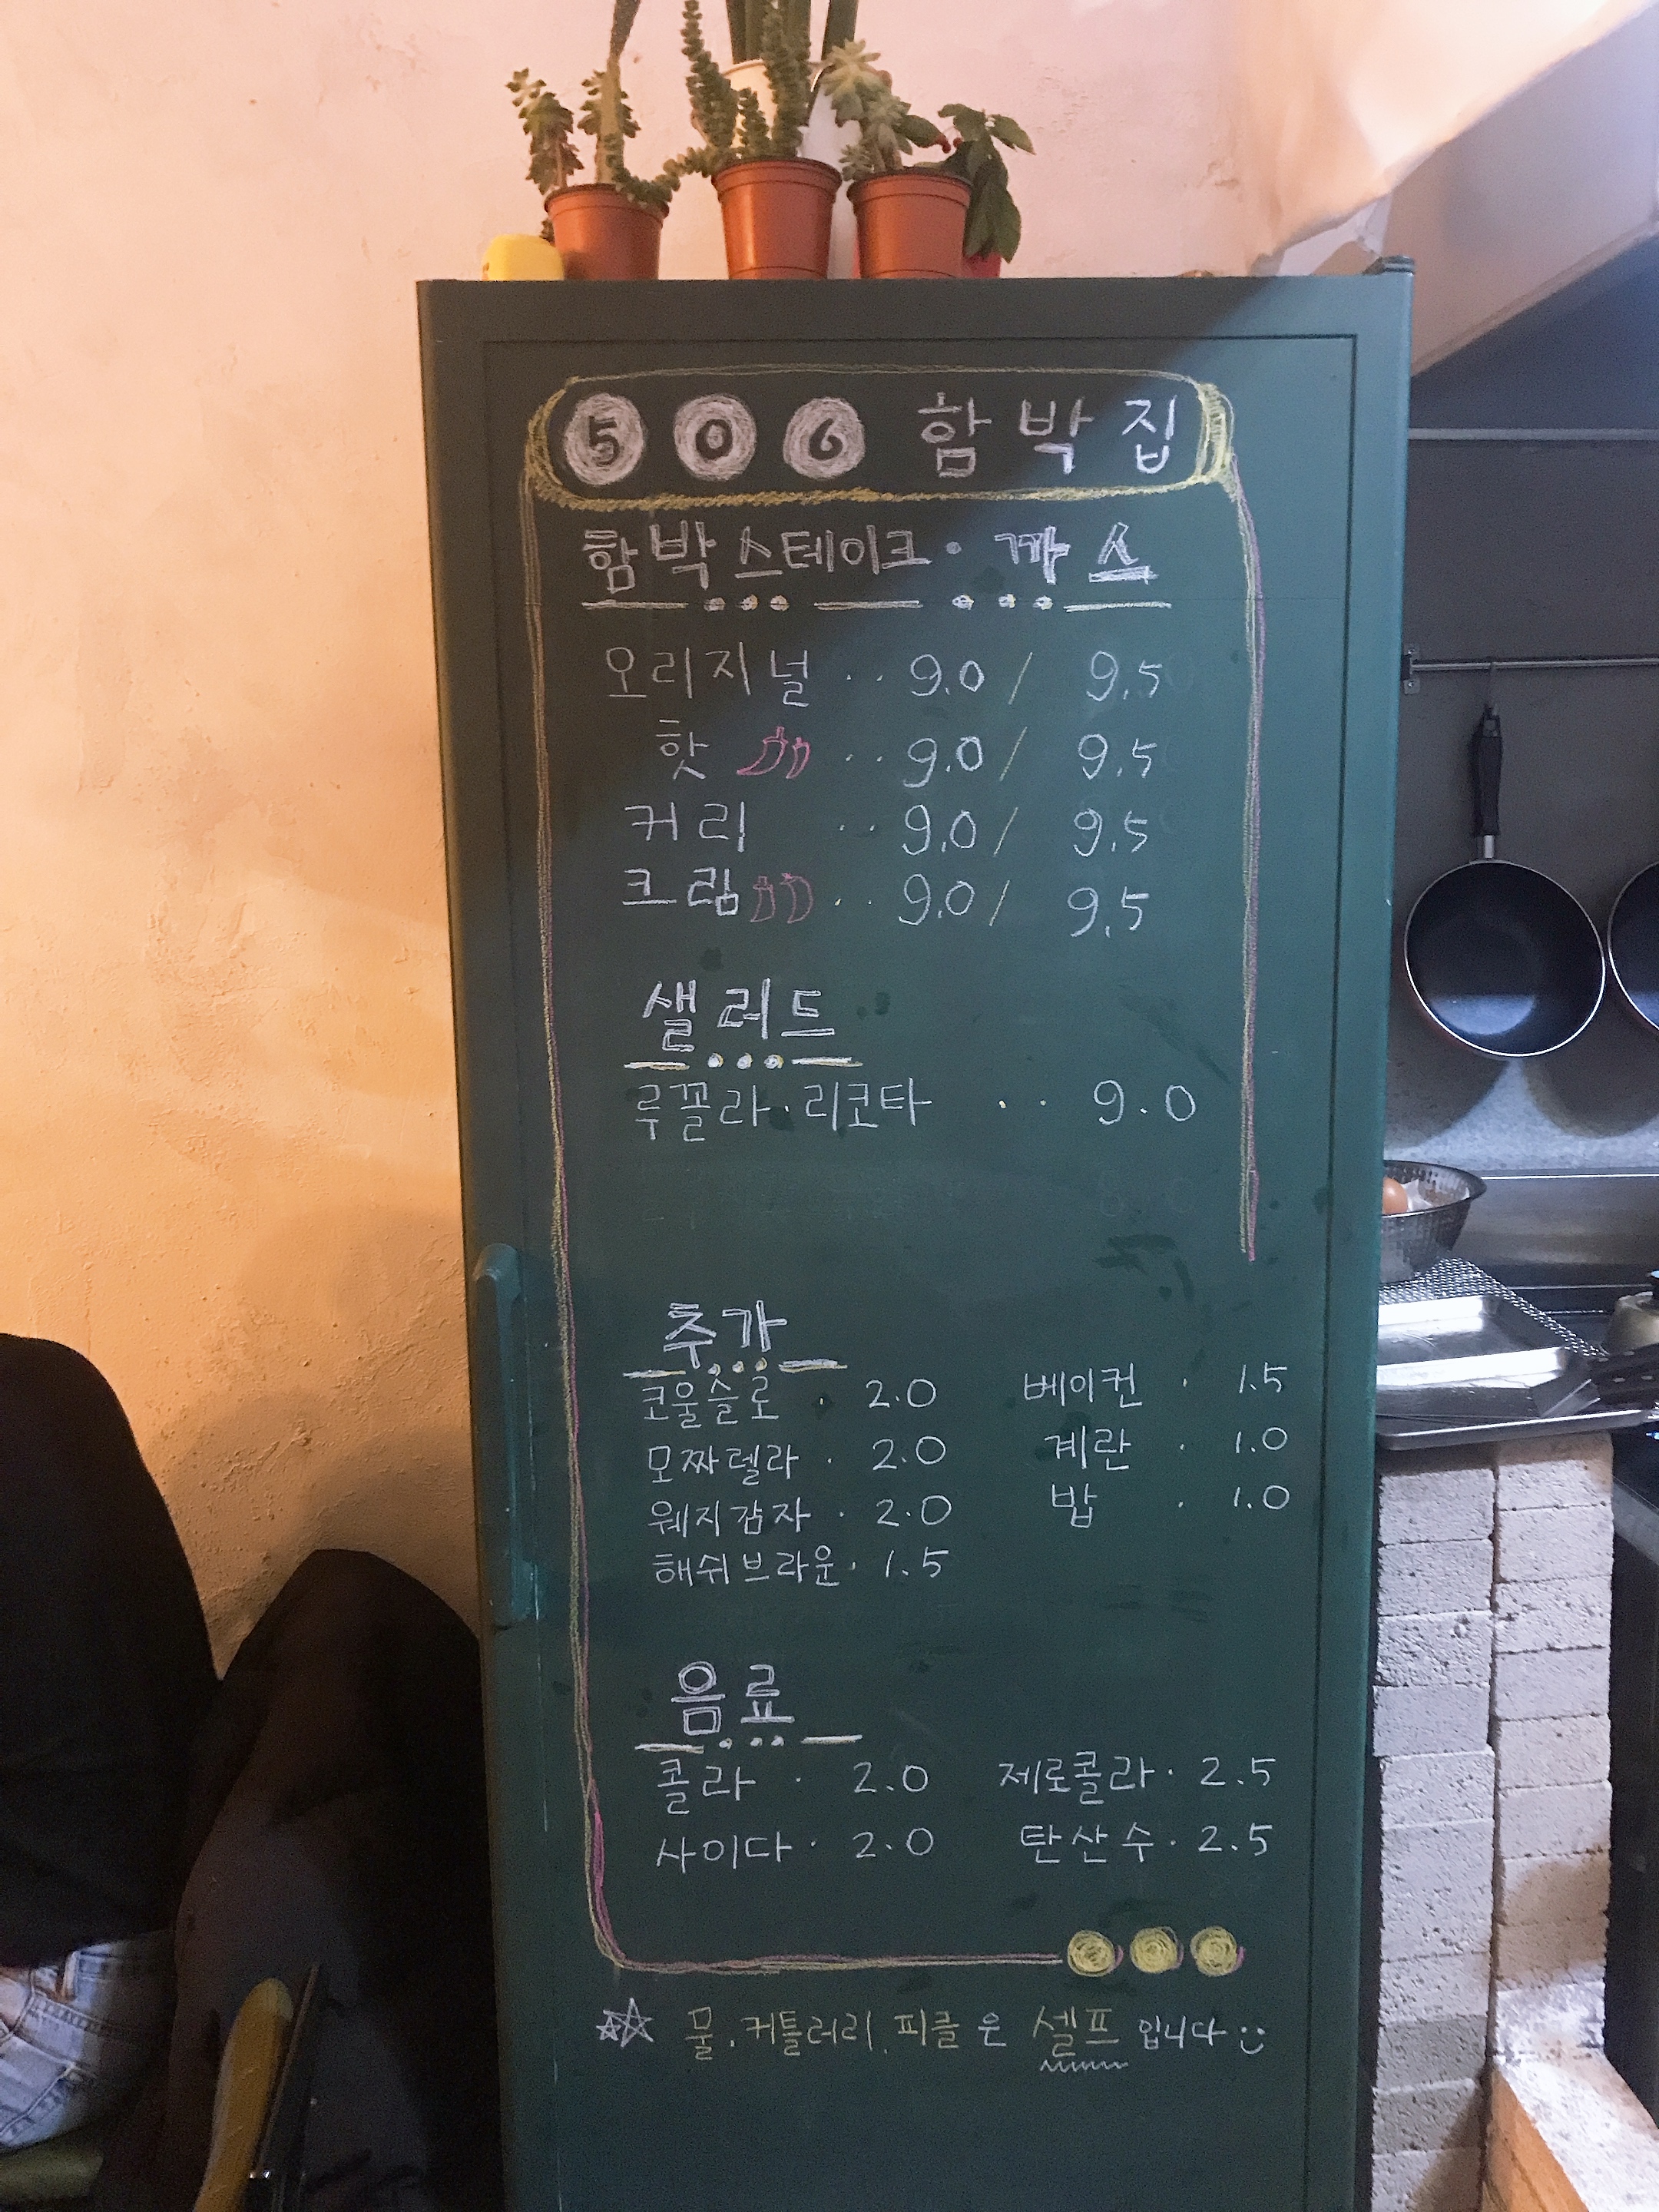 506 함박집
함박스테이크·까스
오리지널 ·· 9.0 / 9.5
핫 ·· 9.0 / 9.5
커리 ·· 9.0 / 9.5
크림 ·· 9.0 / 9.5
샐러드
루꼴라·리코타 ·· 9.0
추가
코울슬로 · 2.0 베이컨 · 1.5
모짜렐라 · 2.0 계란 · 1.0
웨지감자 · 2.0 밥 · 1.0
해쉬브라운 · 1.5
음료
콜라 · 2.0 제로콜라 · 2.5
사이다 · 2.0 탄산수 · 2.5
물, 커틀러리, 피클은 셀프입니다 :)